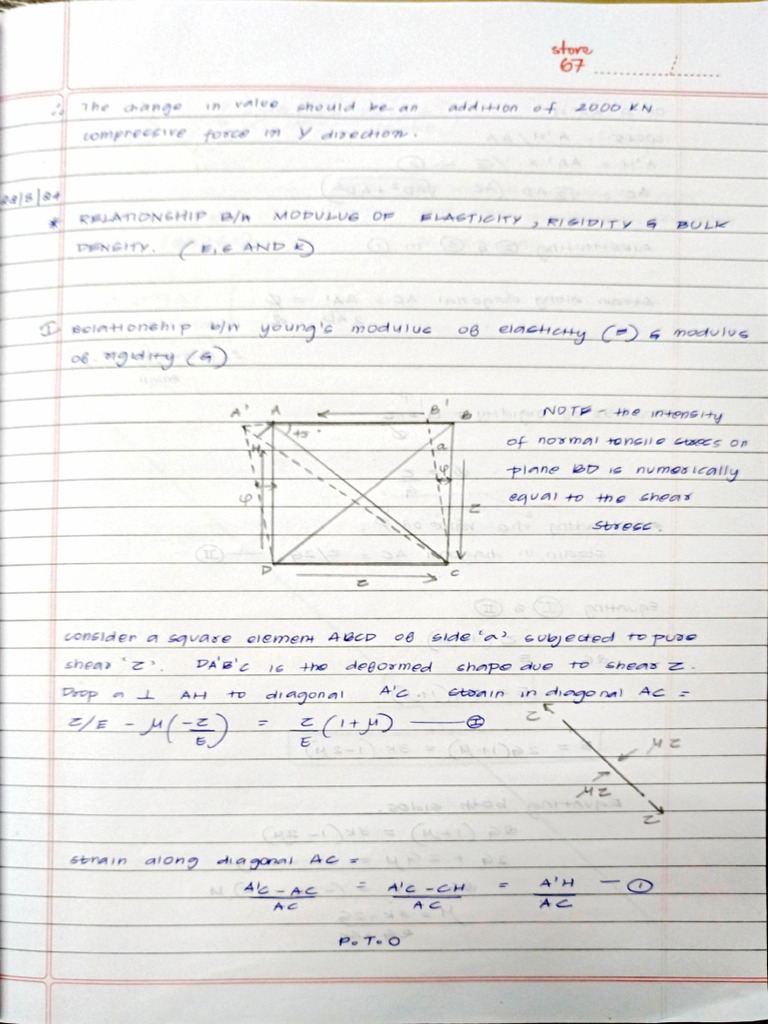 store
67
∴ The change in value should be an addition of 2000 KN
compressive force in Y direction.
* RELATIONSHIP B/n MODULUS OF ELASTICITY, RIGIDITY & BULK
DENSITY. (E, G AND K)
I Relationship b/n young's modulus of elasticity (E) & modulus
of rigidity (G)
A' A B' B
45
H a
φ φ
τ
D C
τ
NOTE - the intensity
of normal tensile stress on
plane BD is numerically
equal to the shear
stress.
consider a square element ABCD of side 'a' subjected to pure
shear 'τ'. DA'B'C is the deformed shape due to shear τ.
Drop a ⊥ AH to diagonal A'C. strain in diagonal AC =
τ/E - μ(-τ/E) = τ/E (1+μ) —— Ⓘ
τ
μτ
μτ
τ
strain along diagonal AC =
A'C - AC / AC = A'C - CH / AC = A'H / AC — ①
P.T.O